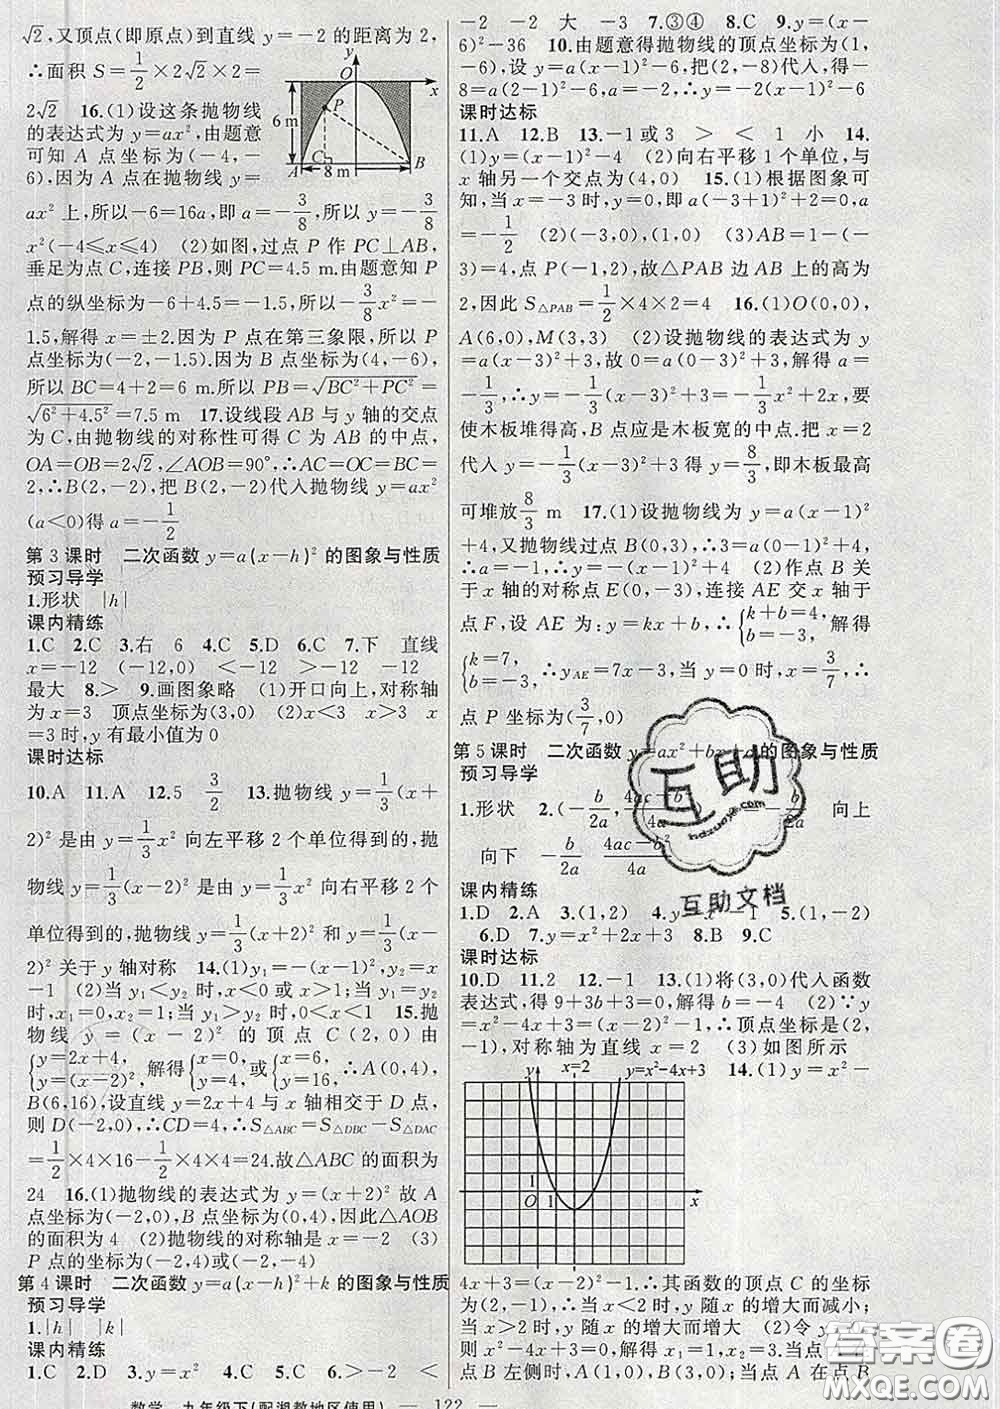 √2,又顶点(即原点)到直线 y=-2 的距离为 2,
∴面积 S=1/2×2√2×2=
2√2　16.(1)设这条抛物线
的表达式为 y=ax²,由题意
可知 A 点坐标为(-4,-
6),因为 A 点在抛物线 y=
O x P 6 m C A 8 m B
ax² 上,所以-6=16a,即 a=-3/8,所以 y=-3/8
x²(-4≤x≤4)　(2)如图,过点 P 作 PC⊥AB,
垂足为点 C,连接 PB,则 PC=4.5 m.由题意知 P
点的纵坐标为-6+4.5=-1.5,所以-3/8x²=-
1.5,解得 x=±2.因为 P 点在第三象限,所以 P
点坐标为(-2,-1.5).因为 B 点坐标为(4,-6),
所以 BC=4+2=6 m.所以 PB=√(BC²+PC²)=
√(6²+4.5²)=7.5 m　17.设线段 AB 与 y 轴的交点
为 C,由抛物线的对称性可得 C 为 AB 的中点,
OA=OB=2√2,∠AOB=90°,∴AC=OC=BC=
2,∴B(2,-2),把 B(2,-2)代入抛物线 y=ax²
(a<0)得 a=-1/2
第 3 课时　二次函数 y=a(x-h)² 的图象与性质
预习导学
1.形状　|h|
课内精练
1.C　2.C　3.右　6　4.C　5.D　6.C　7.下　直线
x=-12　(-12,0)　<-12　>-12　-12
最大　8.>　9.画图象略　(1)开口向上,对称轴
为 x=3　顶点坐标为(3,0)　(2)x<3　x>3　x
=3 时,y 有最小值为 0
课时达标
10.A　11.A　12.5　3/2　13.抛物线 y=1/3(x+
2)² 是由 y=1/3x² 向左平移 2 个单位得到的,抛
物线 y=1/3(x-2)² 是由 y=1/3x² 向右平移 2 个
单位得到的,抛物线 y=1/3(x+2)² 和 y=1/3(x-
2)² 关于 y 轴对称　14.(1)y₁=-(x-1)²,y₂=
x-1　(2)当 y₁<y₂ 时,x<0 或 x>1;当 y₁=y₂
时,x₁=0,x₂=1;当 y₁>y₂ 时,0<x<1　15.抛
物线 y=(x-2)² 的顶点 C(2,0)由
{y=2x+4, y=(x-2)², 解得{x=0, y=4, 或{x=6, y=16, ∴A(0,4),
B(6,16),设直线 y=2x+4 与 x 轴相交于 D 点,
则 D(-2,0),∴CD=4,∴S△ABC=S△DBC-S△DAC
=1/2×4×16-1/2×4×4=24.故△ABC 的面积为
24　16.(1)抛物线的表达式为 y=(x+2)² 故 A
点坐标为(-2,0),B点坐标为(0,4),因此△AOB
的面积为 4　(2)抛物线的对称轴是 x=-2　(3)
P 点的坐标为(-2,4)或(-2,-4)
第 4 课时　二次函数 y=a(x-h)²+k 的图象与性质
预习导学
1.|h|　|k|
课内精练
1.C　2.D　3.y=x²　4.C　5.C　6.>-2　<
-2　-2　大　-3　7.③④　8.C　9.y=(x-
6)²-36　10.由题意得抛物线的顶点坐标为(1,
-6),设 y=a(x-1)²-6,把(2,-8)代入,得-
8=a(2-1)²-6,∴a=-2.∴y=-2(x-1)²-6
课时达标
11.A　12.B　13.-1或3　>　<　1　小　14.
(1)y=(x-1)²-4　(2)向右平移 1 个单位,与
x 轴另一个交点为(4,0)　15.(1)根据图象可
知,当 x=-3 时,y=0,即 a(-3+1)²+2=0,a
=-1/2　(2)(-3,0),(1,0)　(3)AB=1-(-
3)=4,点 P(-1,2),故△PAB 边 AB 上的高为
2,因此 S△PAB=1/2×4×2=4　16.(1)O(0,0),
A(6,0),M(3,3)　(2)设抛物线的表达式为 y
=a(x-3)²+3,故 0=a(0-3)²+3,解得 a=
-1/3,∴y=-1/3(x-3)²+3=-1/3x²+2x,要
使木板堆得高,B 点应是木板宽的中点.把 x=2
代入 y=-1/3(x-3)²+3得 y=8/3,即木板最高
可堆放8/3 m　17.(1)设抛物线为 y=a(x-1)²
+4,又抛物线过点 B(0,3),∴3=a(0-1)²+4,
∴a=-1,∴y=-(x-1)²+4　(2)作点 B 关
于 x 轴的对称点 E(0,-3),连接 AE 交 x 轴于
点 F,设 AE 为:y=kx+b,∴{k+b=4, b=-3, 解得
{k=7, b=-3, ∴yAE=7x-3,当 y=0 时,x=3/7,∴
点 P 坐标为(3/7,0)
第 5 课时　二次函数 y=ax²+bx+c 的图象与性质
预习导学
1.形状　2.(-b/2a,(4ac-b²)/4a)　-b/2a　向上
向下　-b/2a　(4ac-b²)/4a
课内精练
1.D　2.A　3.(1,2)　4.　5.(1,-2)
6.D　7.y=x²+2x+3　8.B　9.C
课时达标
10.D　11.2　12.-1　13.(1)将(3,0)代入函数
表达式,得 9+3b+3=0,解得 b=-4　(2)∵y
=x²-4x+3=(x-2)²-1,∴顶点坐标是(2,
-1),对称轴为直线 x=2　(3)如图所示
y x=2 y=x²-4x+3
1 O 1 x
14.(1)y=x²-
4x+3=(x-2)²-1,∴其函数的顶点 C 的坐标
为(2,-1),∴当 x<2 时,y 随 x 的增大而减小;
当 x>2 时,y 随 x 的增大而增大　(2)令 y
=x²-4x+3=0,解得 x₁=1,x₂=3.当
点 B 左侧时,A(1,0),B(3,0).当点 A 在点 B
数学　九年级下(配湘教地区使用)　— 122 —
互助
互助文档
答案圈
MXQE.COM